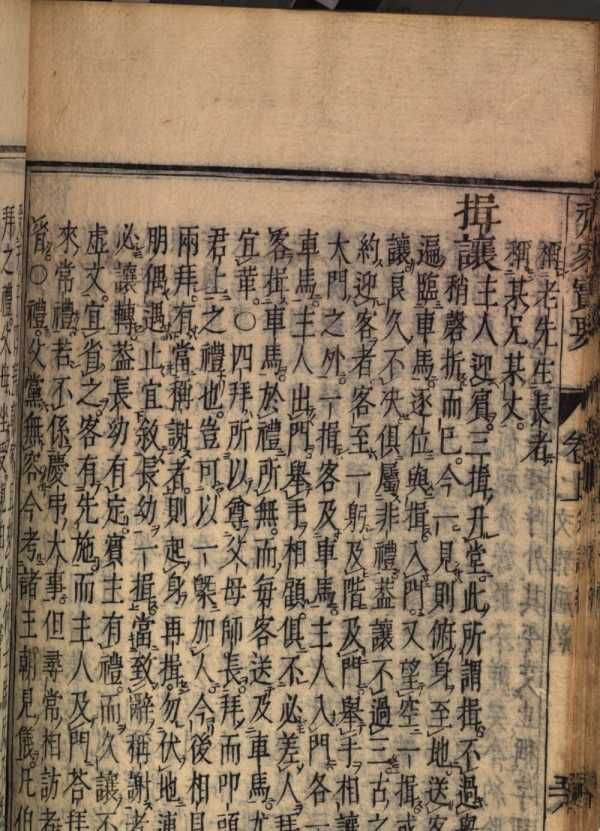 稱老先生長者
稱某兄某丈
揖讓
主人迎賓三揖升堂此所謂揖不過
稍磬折而已今一見則俯身至地送客
遍臨車馬逐位與揖入門又望空一揖或
讓良久不決俱屬非禮葢讓不過三古之
約迎客者客至一躬及階及門舉手相讓
大門之外一揖客及車馬主人入門各一
車馬主人出門舉手相顧俱不必差人拜
客揖車馬於禮所無而每客送及車馬尤
宜革○四拜所以尊父母師長拜而叩頭
君上之禮也豈可以一槩加人今後相見
兩拜有當稱謝者則起身再揖勿伏地
朋偶遇止宜敘長幼一揖當致辭稱謝者
必讓轉葢長幼有定賓主有禮而久讓不
虛文宜省之客有先施而主人及門荅拜
來常禮若不係慶弔大事但尋常相訪者
省○禮父黨無容今考諸王朝見儀凡伯
拜之禮父母坐受
齊家寶要
卷上